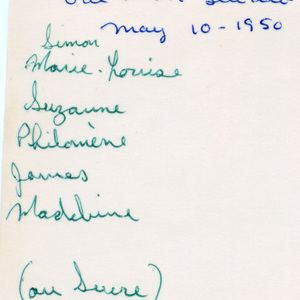 May 10-1950
Simon
Marie-Louise
Suzanne
Philomène
James
Madeleine
(au Sucre)